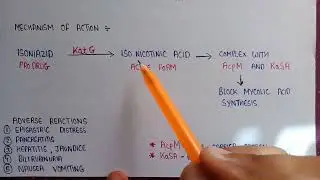 MECHANISM OF ACTION :-
ISONIAZID KatG ISO NICOTINIC ACID COMPLEX WITH
PRODRUG FORM AcpM AND KaSA
BLOCK MYCOLIC ACID
SYNTHESIS.
ADVERSE REACTIONS
① EPIGASTRIC DISTRESS
② PANCREATITIS
③ HEPATITIS, JAUNDICE
④ BILIRUBINURIA
⑤ NAUSEA VOMITING
* AcpM
* KaSA